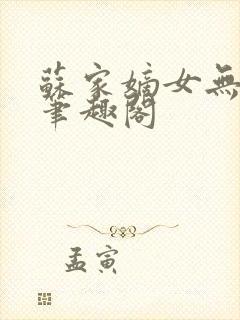 蘇家嫡女無
筆趣閣
孟寅